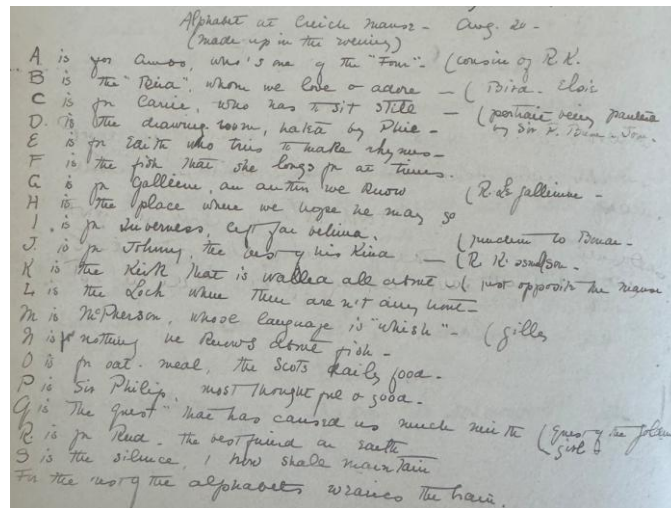 Alphabet at Creich Manse - Aug. 20 -
(made up in the evening)
A is for Amos, who's one of the "Four" - (cousin of R.K.
B is the "Bird", whom we love & adore - (Bird - Elsie
C is for Carrie, who has to sit still - (portrait being painted
D. is the drawing room, hated by Phil - by Sir P. Burne-Jones
E is for Edith who tries to make rhymes -
F is the fish that she longs for at times.
G is for Gallienne, an author we know (R. Le Gallienne -
H is the place where we hope he may go
I. is for Inverness, left far behind. (junction to Bonar -
J. is for Johnny, the best of his kind - (R. K.'s
K is the Kirk that is walled all about (just opposite the manse
L is the Loch where there are n't any trout -
M is McPherson, whose language is "whish" - (gillie
N is for nothing he knows about fish -
O is for oat-meal, the Scots daily food -
P is Sir Philip, most thoughtful & good -
Q is the quest" that has caused us much mirth (quest of the golden
R is for Rud - the best friend on earth girl -
S is the silence, I now shall maintain
For the rest of the alphabets wearies the brain.